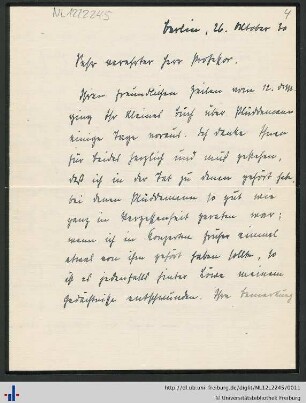 NL12/2245
4
Berlin, 26. Oktober 30
Sehr verehrter Herr Professor.
Ihren freundlichen Zeilen vom 12. dss.
ging Ihr kleines Buch über Plüddemann
einige Tage voraus. Ich danke Ihnen
für beides herzlich und muß gestehen,
daß ich in der Tat zu denen gehört habe
bei denen Plüddemann so gut wie
ganz in Vergessenheit geraten war;
wenn ich in Konzerten früher einmal
etwas von ihm gehört haben sollte, so
ist es jedenfalls hinter Löwe meinem
Gedächtnisse entschwunden. Ihre Bemerkung
http://dl.ub.uni-freiburg.de/diglit/NL12_2245/0011
© Universitätsbibliothek Freiburg